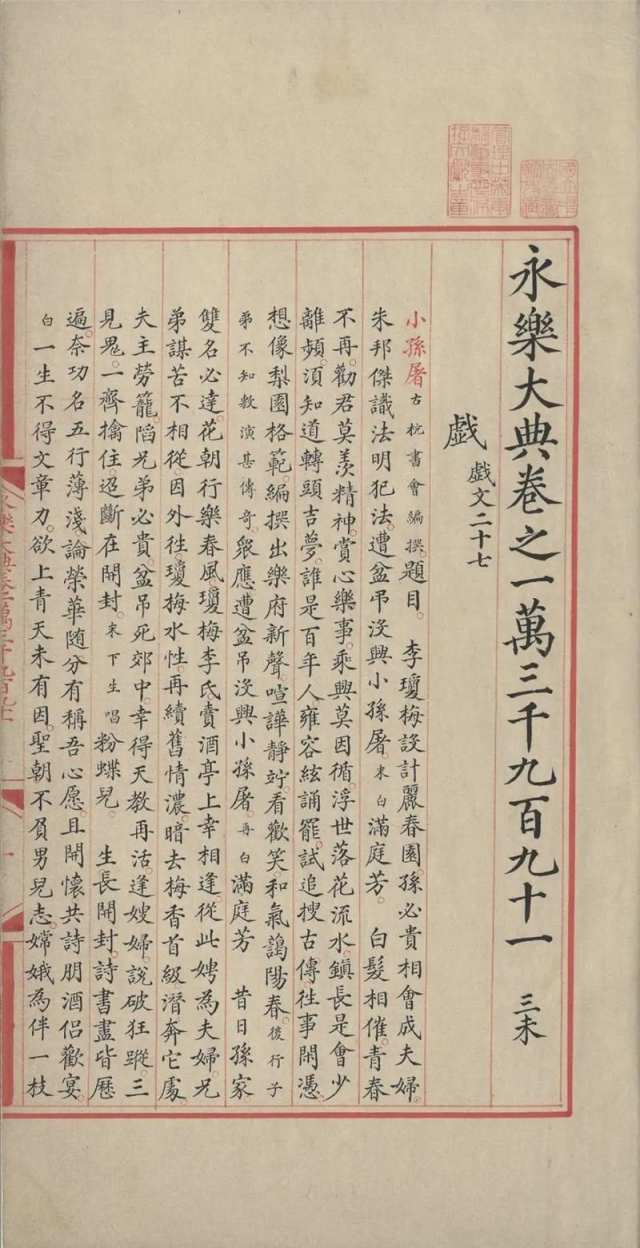 永樂大典卷之一萬三千九百九十一　三未
戲　戲文二十七
小孫屠古杭書會編撰題目　李瓊梅設計麗春園孫必貴相會成夫婦
朱邦傑識法明犯法遭盆吊沒興小孫屠末白滿庭芳　白髮相催青春
不再勸君莫羨精神賞心樂事乘興莫因循浮世落花流水鎮長是會少
離頻須知道轉頭吉夢誰是百年人雍容絃誦罷試追搜古傳往事閑憑
想像梨園格範編撰出樂府新聲喧譁靜竚看歡笑和氣藹陽春後行子
弟不知敷演甚傳奇衆應遭盆吊沒興小孫屠再白滿庭芳　昔日孫家
雙名必達花朝行樂春風瓊梅李氏賣酒亭上幸相逢從此娉為夫婦兄
弟謀苦不相從因外往瓊梅水性再續舊情濃暗去梅香首級潛奔它處
夫主勞籠陷兄弟必貴盆吊死郊中幸得天教再活逢嫂婦說破狂蹤三
見鬼一齊擒住迢斷在開封末下生唱粉蝶兒　生長開封詩書盡皆歷
遍奈功名五行薄淺論榮華隨分有稱吾心愿且開懷共詩朋酒侶歡宴
白一生不得文章力欲上青天未有因聖朝不負男兒志嫦娥為伴一枝